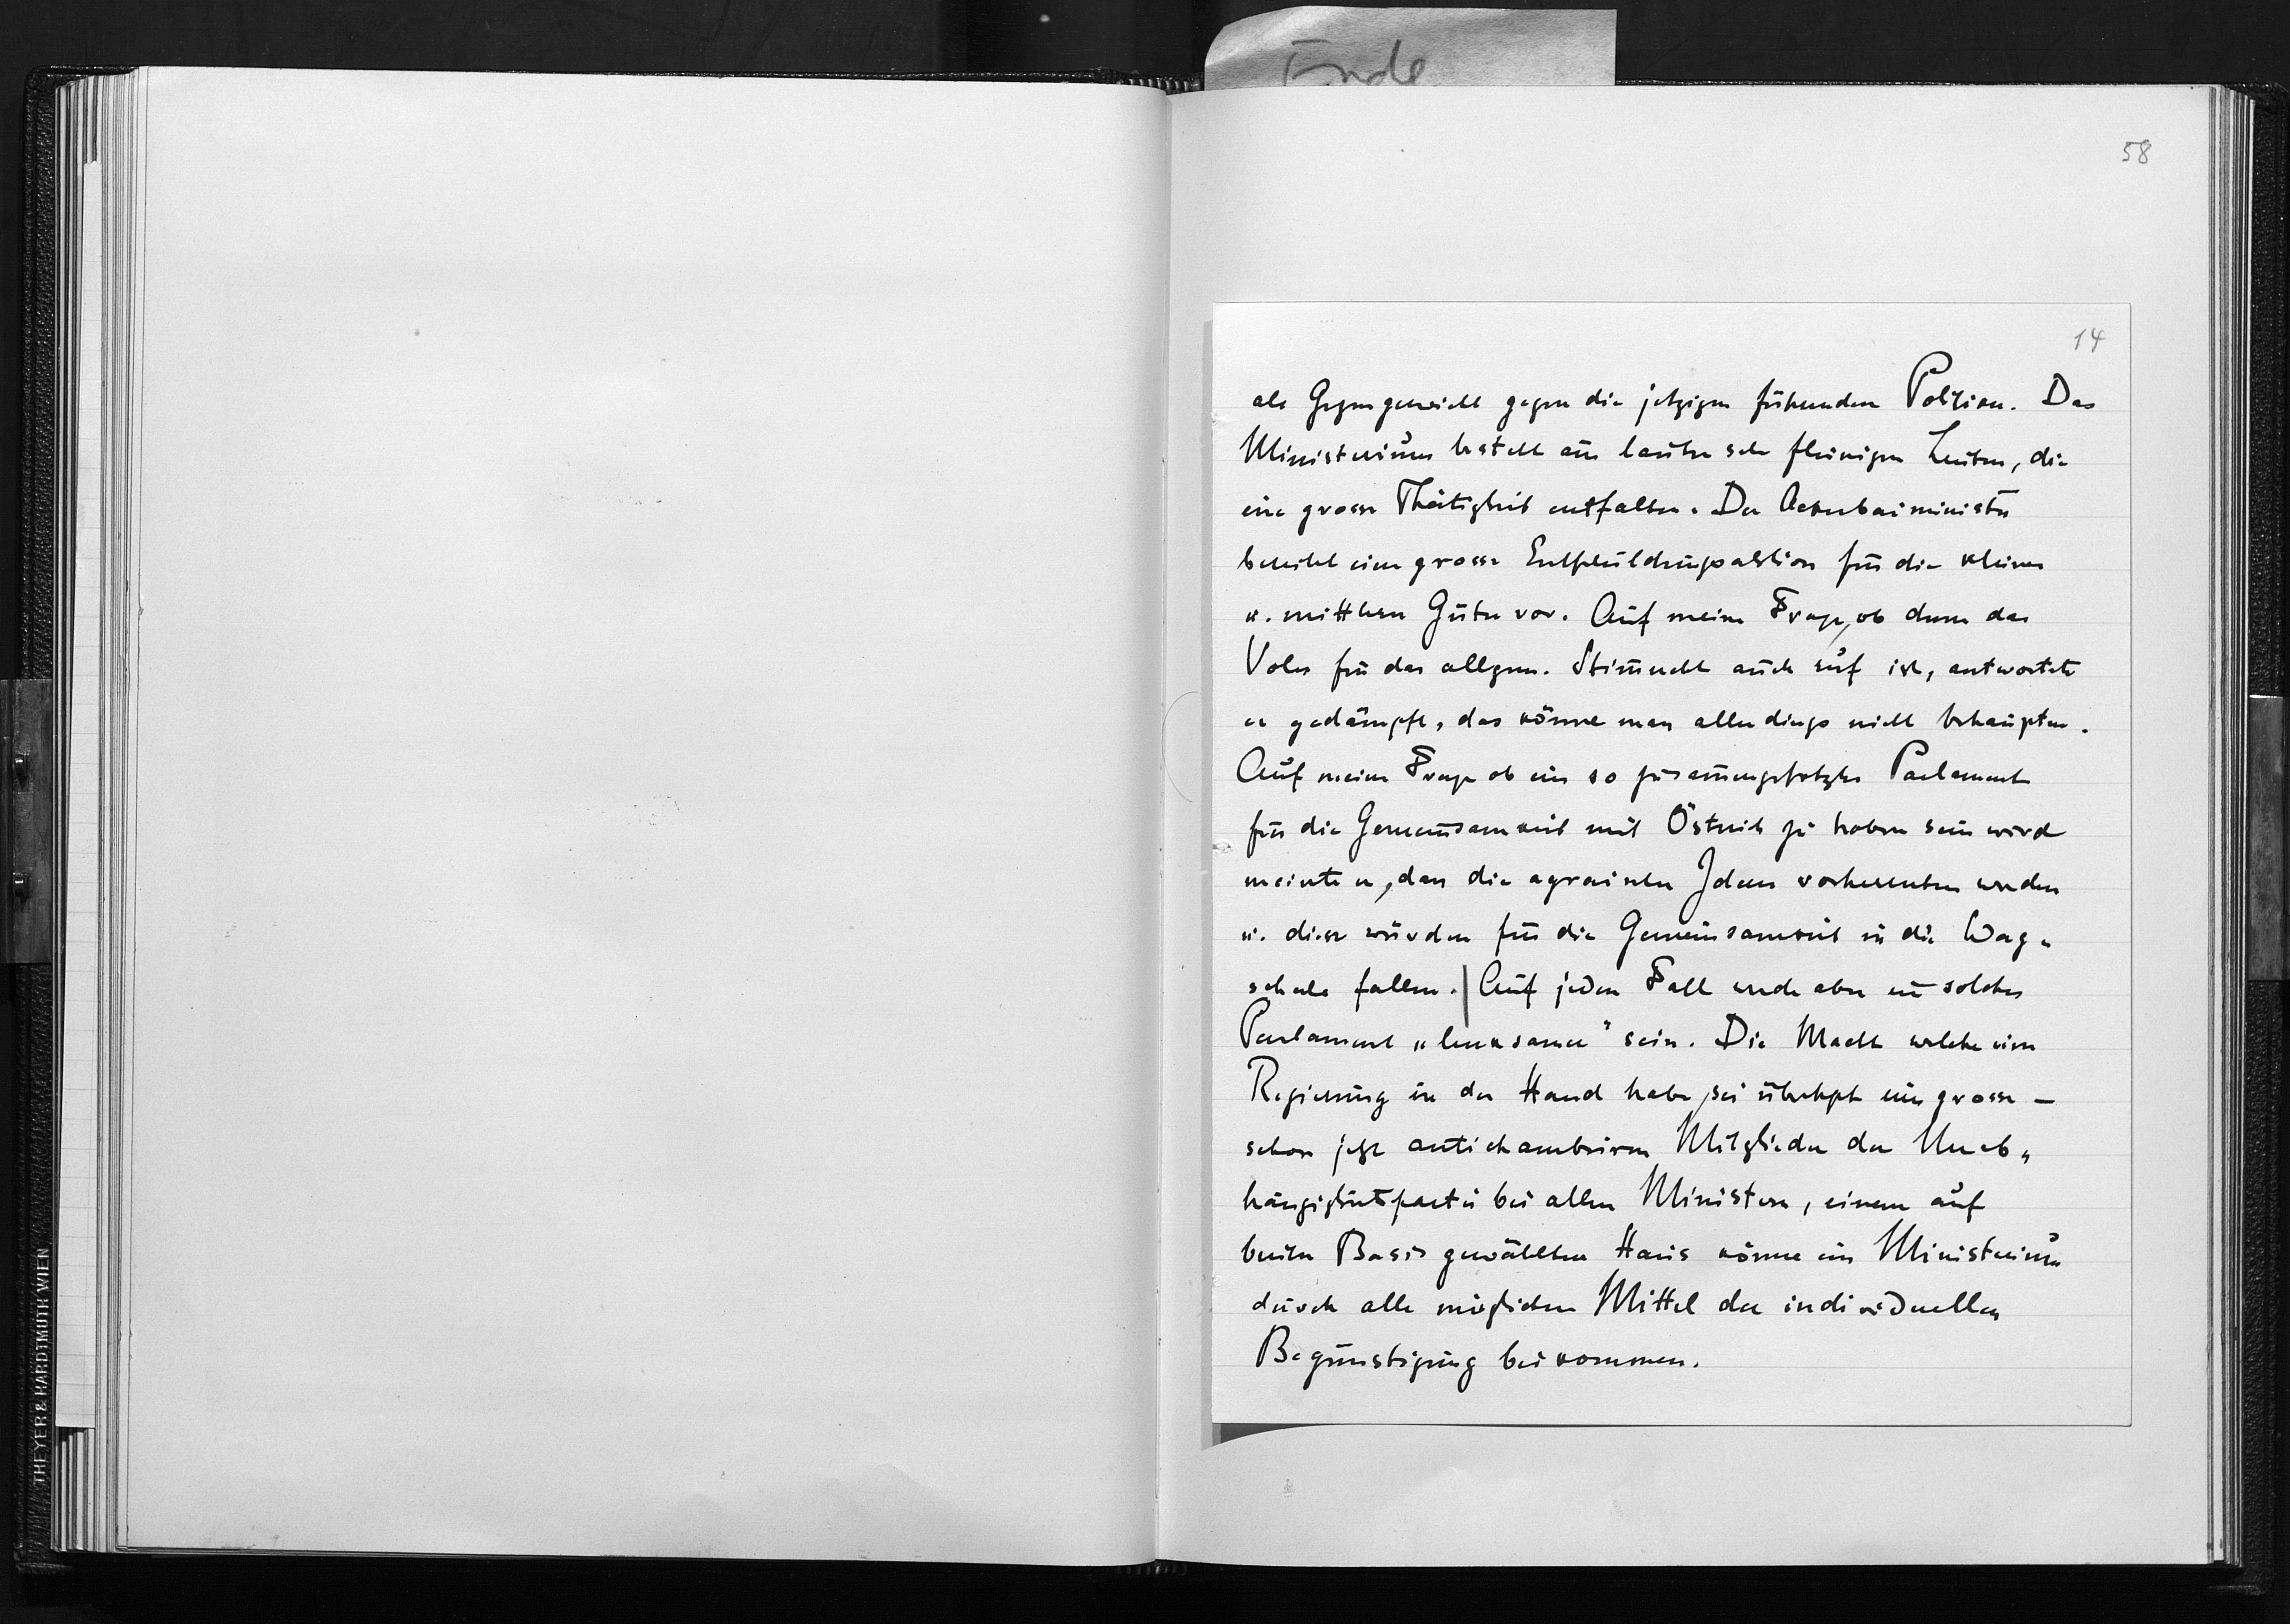 Ende
58
14
als Gegengewicht gegen die jetzigen führenden Politiker. Das
Ministerium besteht aus lauter sehr fleissigen Leuten, die
eine grosse Thätigkeit entfalten. Der Ackerbauminister
bereitet eine grosse Entschuldungsaktion für die kleinen
u. mittleren Güter vor. Auf meine Frage, ob denn das
Volk für das allgem. Stimmrecht auch reif ist, antwortete
er gedämpft, das könne man allerdings nicht behaupten.
Auf meine Frage ob ein so zusammengesetztes Parlament
für die Gemeinsamkeit mit Östreich zu haben sein wird
meinte er, dass die agrarischen Ideen vorherrschen werden
u. diese würden für die Gemeinsamkeit in die Wag„
schale fallen. | Auf jeden Fall werde aber ein solches
Parlament „lenksamer“ sein. Die Macht welche eine
Regierung in der Hand habe, sei überhpt eine grosse –
schon jetzt antichambriren Mitglieder der Unab„
hängigkeitspartei bei allen Ministern, einem auf
breiter Basis gewählten Haus könne ein Ministerium
durch alle möglichen Mittel der individuellen
Begünstigung beikommen.
THEYER & HARDTMUTH WIEN